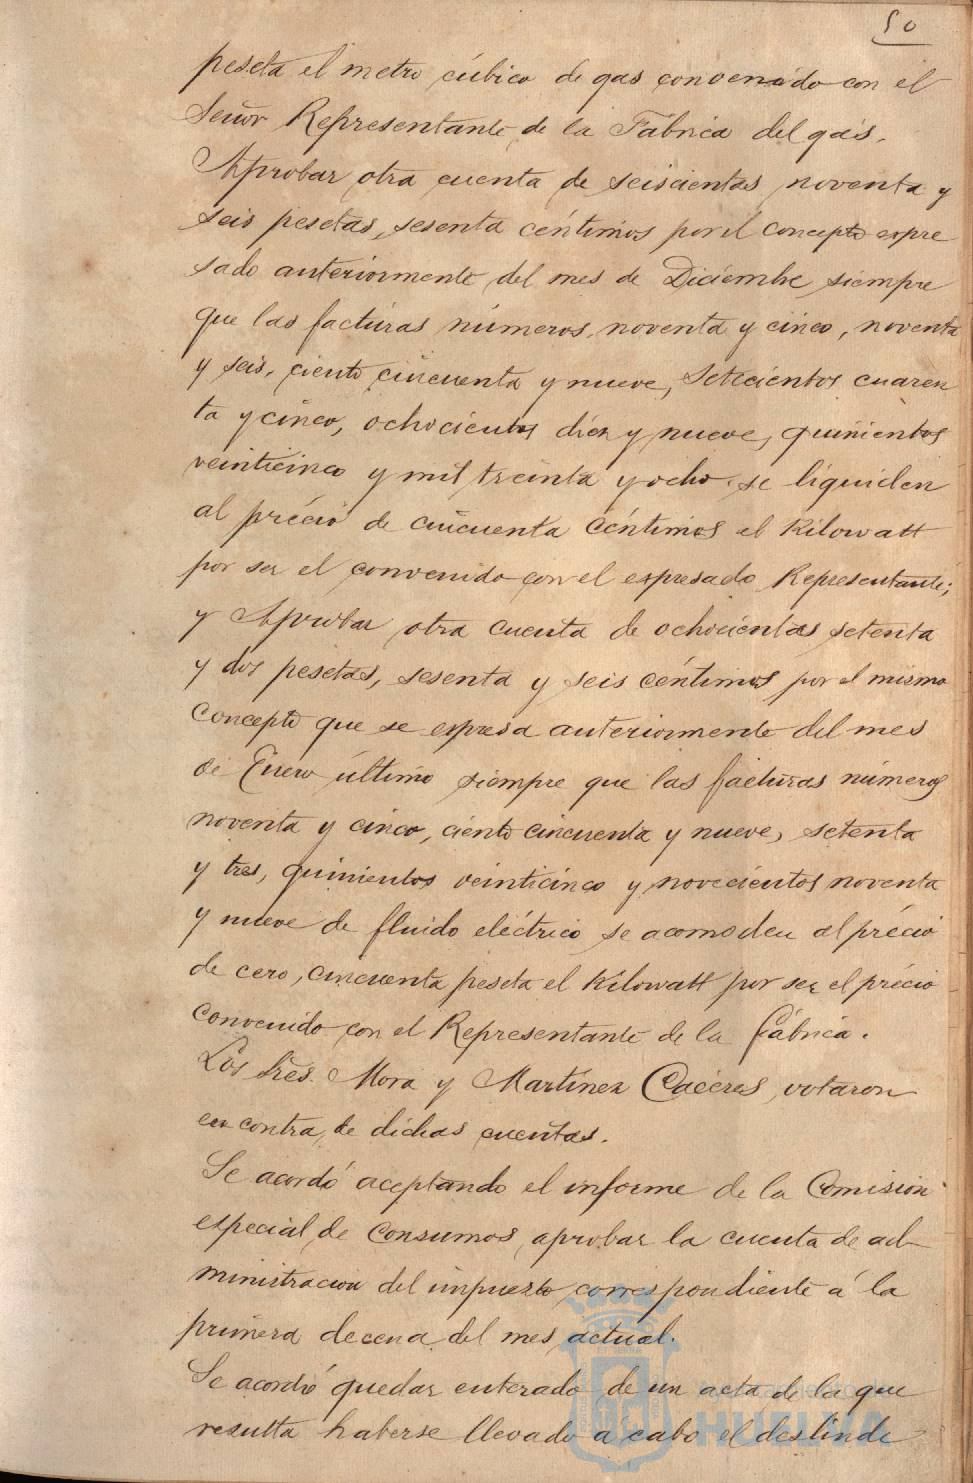 50
peseta el metro cúbico de gas convenido con el
Señor Representante de la Fabrica del gás.
Aprobar otra cuenta de seiscientas noventa y
seis pesetas, sesenta céntimos por el concepto expre
sado anteriormente del mes de Diciémbre siempre
que las facturas números, noventa y cinco, noventa
y seis, ciento cincuenta y nueve, Setecientos cuaren
ta y cinco, ochocientos diez y nueve, quinientos
veinticinco y mil treinta y ocho se liquiden
al précio de cincuenta céntimos el Kilowatt
por ser el convenido con el expresado Representante;
y Aprobar otra cuenta de ochocientas setenta
y dos pesetas, sesenta y seis céntimos por el mismo
concepto que se expresa anteriormente del mes
de Enero último siempre que las facturas números
noventa y cinco, ciento cincuenta y nueve, setenta
y tres, quinientos veinticinco y novecientos noventa
y nueve de fluido eléctrico se acomoden al précio
de cero, cincuenta peseta el Kilowatt por ser el précio
convenido con el Representante de la fábrica.
Los Sres. Mora y Martínez Cáceres, votaron
en contra de dichas cuentas.
Se acordó aceptando el informe de la Comisión
especial de Consumos, aprobar la cuenta de ad-
ministracion del impuesto correspondiente á la
primera decena del mes actual.
Se acordó quedar enterado de un acta de la que
resulta haberse llevado á cabo el deslinde
Ayuntamiento de
HUELVA